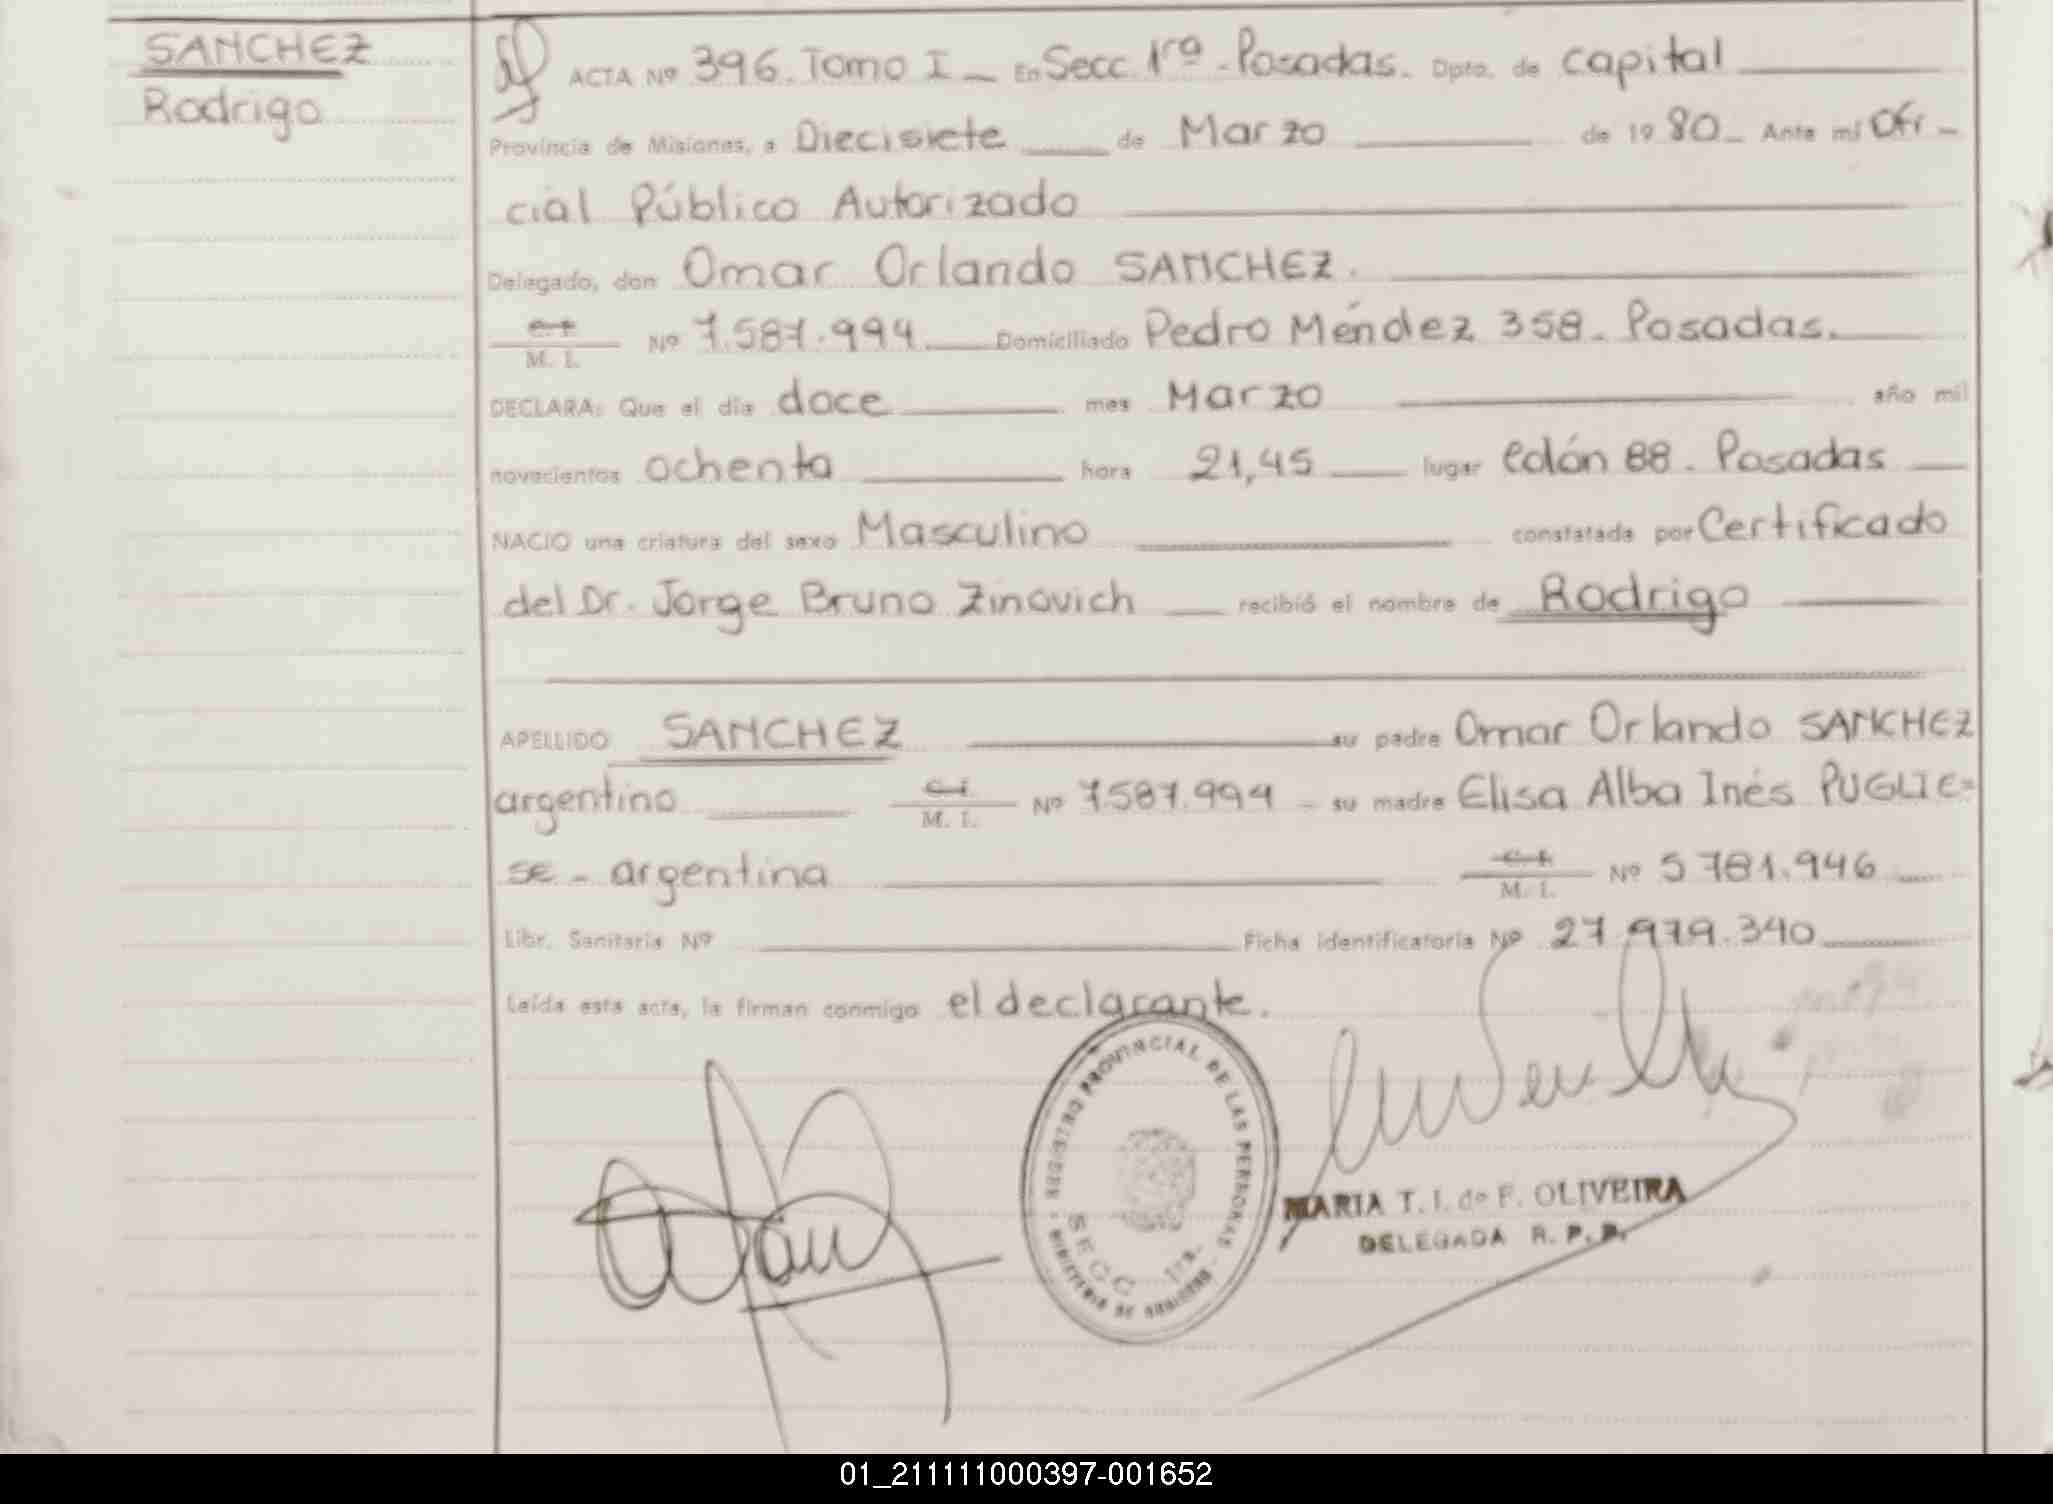 SANCHEZ
Rodrigo
ACTA Nº 396. Tomo I _ En Secc. 1ra - Posadas. Dpto. de Capital
Provincia de Misiones, a Diecisiete de Marzo de 1980_ Ante mí Ofi-
cial Público Autorizado
Delegado, don Omar Orlando SANCHEZ.
M. I. Nº 7.587.994 Domiciliado Pedro Méndez 358. Posadas.
DECLARA: Que el día doce mes Marzo año mil
novecientos ochenta hora 21,45 lugar Colón 88. Posadas
NACIO una criatura del sexo Masculino constatada por Certificado
del Dr. Jorge Bruno Zinovich recibió el nombre de Rodrigo
APELLIDO SANCHEZ su padre Omar Orlando SANCHEZ
argentino C.I. M. I. Nº 7.587.994 - su madre Elisa Alba Inés PUGLIE=
SE - argentina C.I. M. I. Nº 5 781.946
Libr. Sanitaria Nº Ficha identificatoria Nº 27.979.340
Leída esta acta, la firman conmigo el declarante.
REGISTRO PROVINCIAL DE LAS PERSONAS
MINISTERIO DE GOBIERNO
SECC. 1ra.
MARIA T. I. de F. OLIVEIRA
DELEGADA R. P. P.
01_211111000397-001652